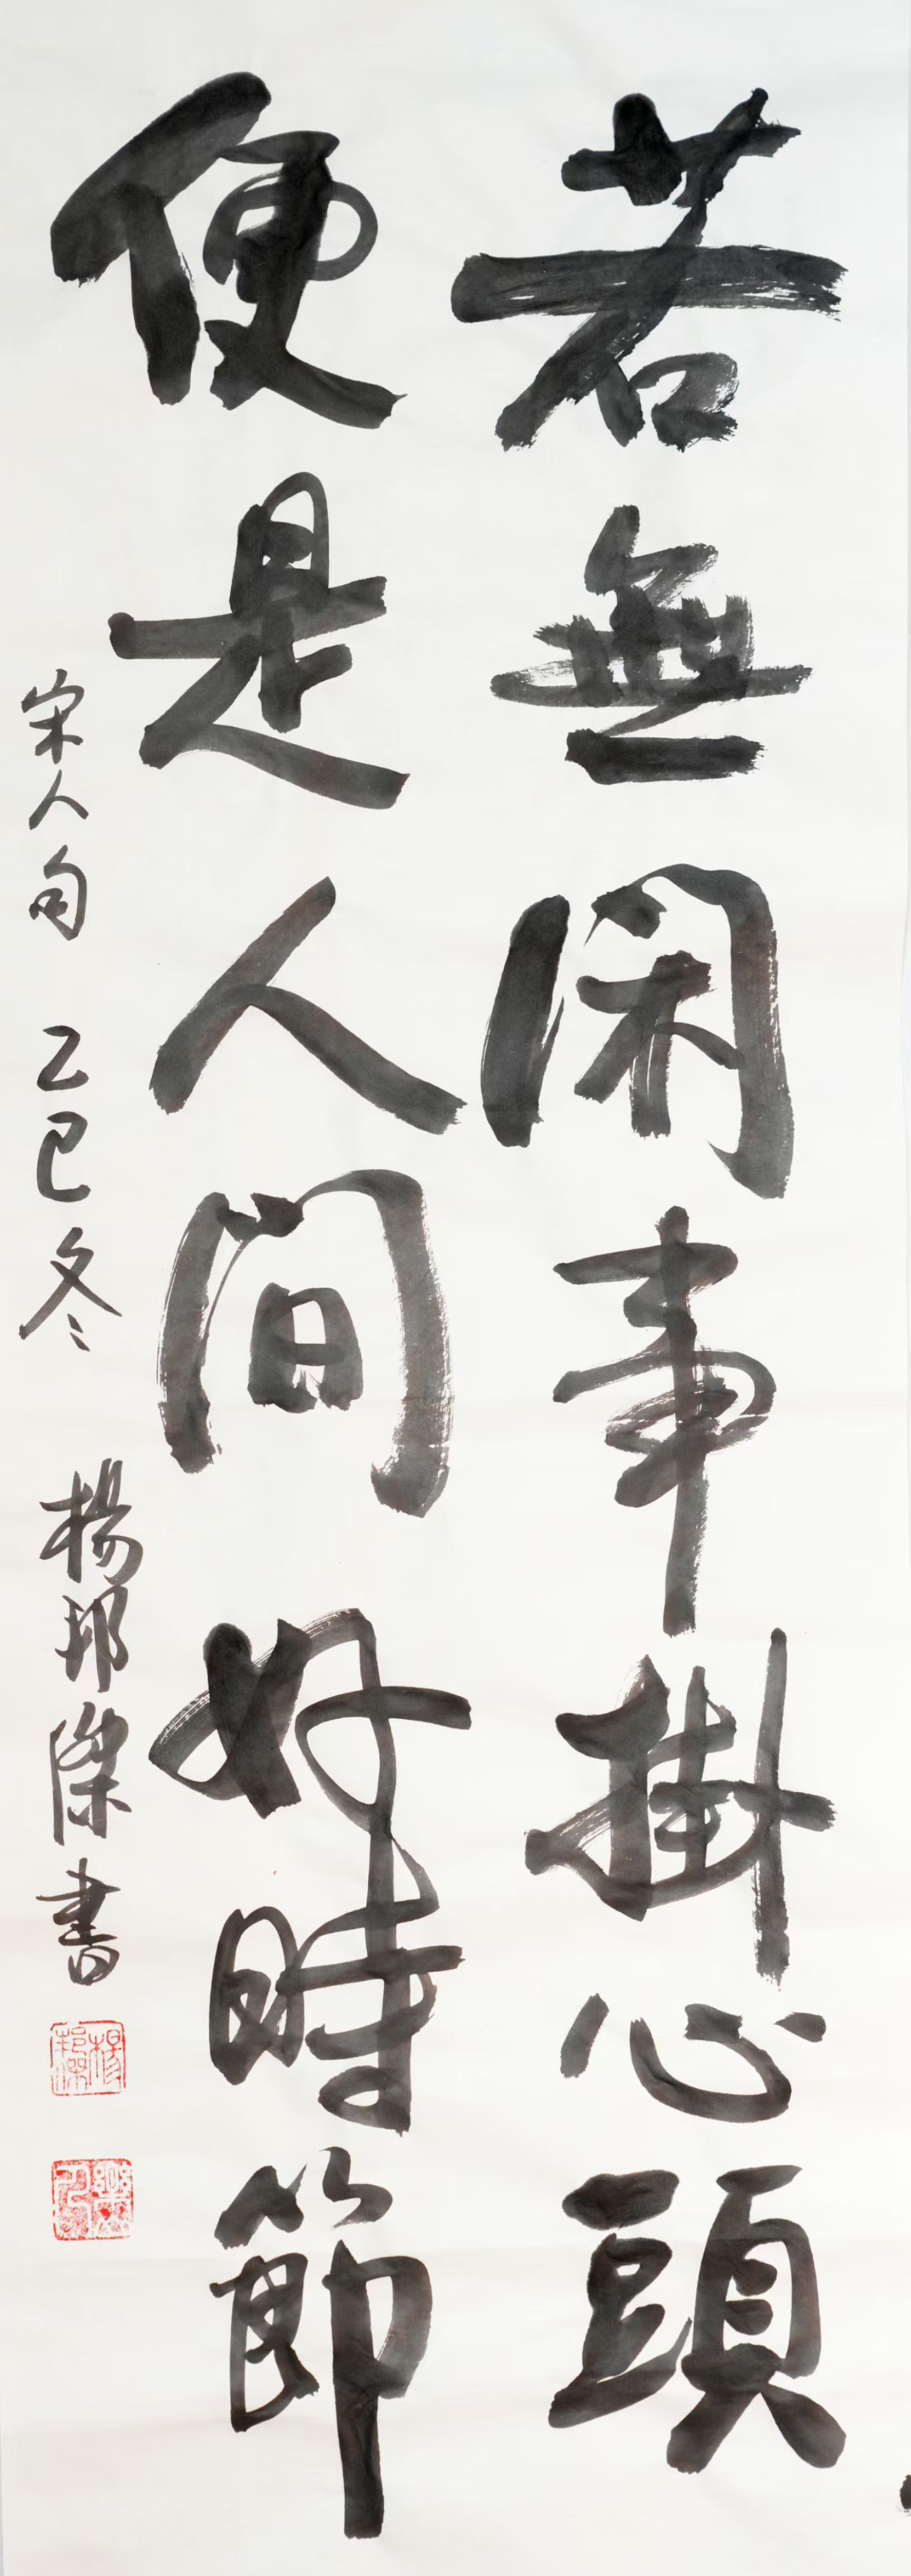 若無閑事掛心頭
便是人間好時節
宋人句 乙巳冬 楊邦傑書
楊邦傑